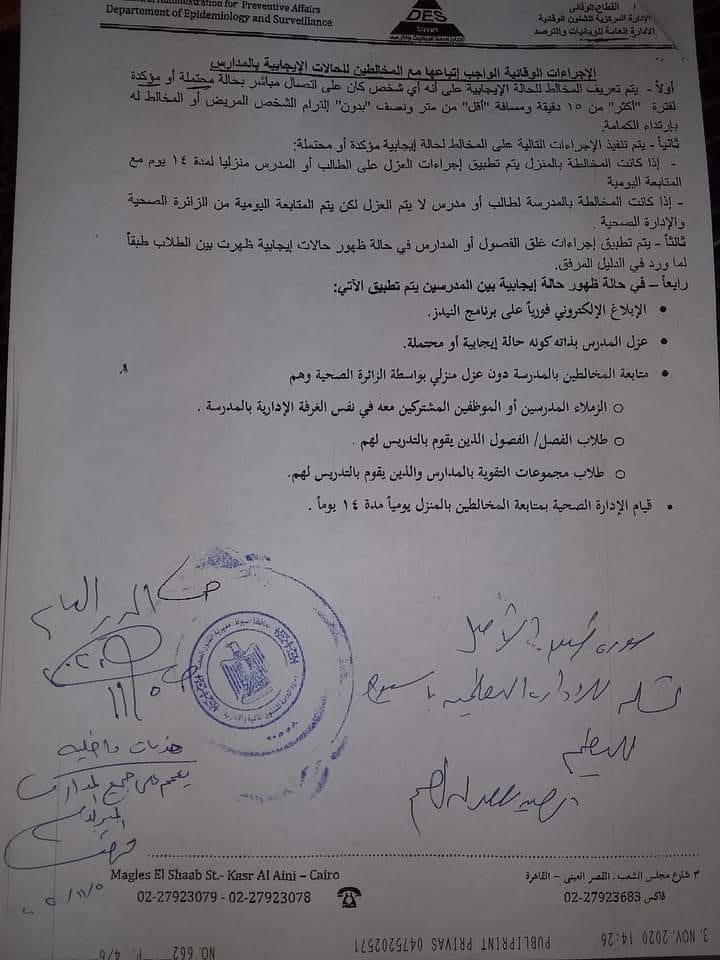 General Administration for Preventive Affairs
Departement of Epidemiology and Surveillance
DES
القطاع الوقائى
الإدارة المركزية للشئون الوقائية
الإدارة العامة للوبائيات والترصد
الإجراءات الوقائية الواجب إتباعها مع المخالطين للحالات الإيجابية بالمدارس
أولاً - يتم تعريف المخالط للحالة الإيجابية على أنه أي شخص كان على اتصال مباشر بحالة محتملة أو مؤكدة
لفترة "أكثر" من ١٥ دقيقة ومسافة "أقل" من متر ونصف "بدون" إلتزام الشخص المريض أو المخالط له
بإرتداء الكمامة.
ثانياً - يتم تنفيذ الإجراءات التالية على المخالط لحالة إيجابية مؤكدة أو محتملة:
- إذا كانت المخالطة بالمنزل يتم تطبيق إجراءات العزل على الطالب أو المدرس منزليا لمدة ١٤ يوم مع
المتابعة اليومية
- إذا كانت المخالطة بالمدرسة لطالب أو مدرس لا يتم العزل لكن يتم المتابعة اليومية من الزائرة الصحية
والإدارة الصحية .
ثالثاً - يتم تطبيق إجراءات غلق الفصول أو المدارس في حالة ظهور حالات إيجابية ظهرت بين الطلاب طبقاً
لما ورد في الدليل المرفق.
رابعاً – في حالة ظهور حالة إيجابية بين المدرسين يتم تطبيق الآتي:
• الإبلاغ الإلكتروني فورياً على برنامج النيدز.
• عزل المدرس بذاته كونه حالة إيجابية أو محتملة.
• متابعة المخالطين بالمدرسة دون عزل منزلي بواسطة الزائرة الصحية وهم
○ الزملاء المدرسين أو الموظفين المشتركين معه في نفس الغرفة الإدارية بالمدرسة .
○ طلاب الفصل/ الفصول الذين يقوم بالتدريس لهم .
○ طلاب مجموعات التقوية بالمدارس والذين يقوم بالتدريس لهم.
• قيام الإدارة الصحية بمتابعة المخالطين بالمنزل يومياً مدة ١٤ يوماً .
صورة طبق الأصل
المدير العام
للتعليم
يعمم على جميع المدارس
٣ شارع مجلس الشعب . القصر العينى – القاهرة
فاكس 27923683-02
Magles El Shaab St.- Kasr Al Aini – Cairo
02-27923079 - 02-27923078
3. NOV. 2020 14:26 PUBLIPRINT PRIVAS 0475202571 NO. 662 P. 4/6